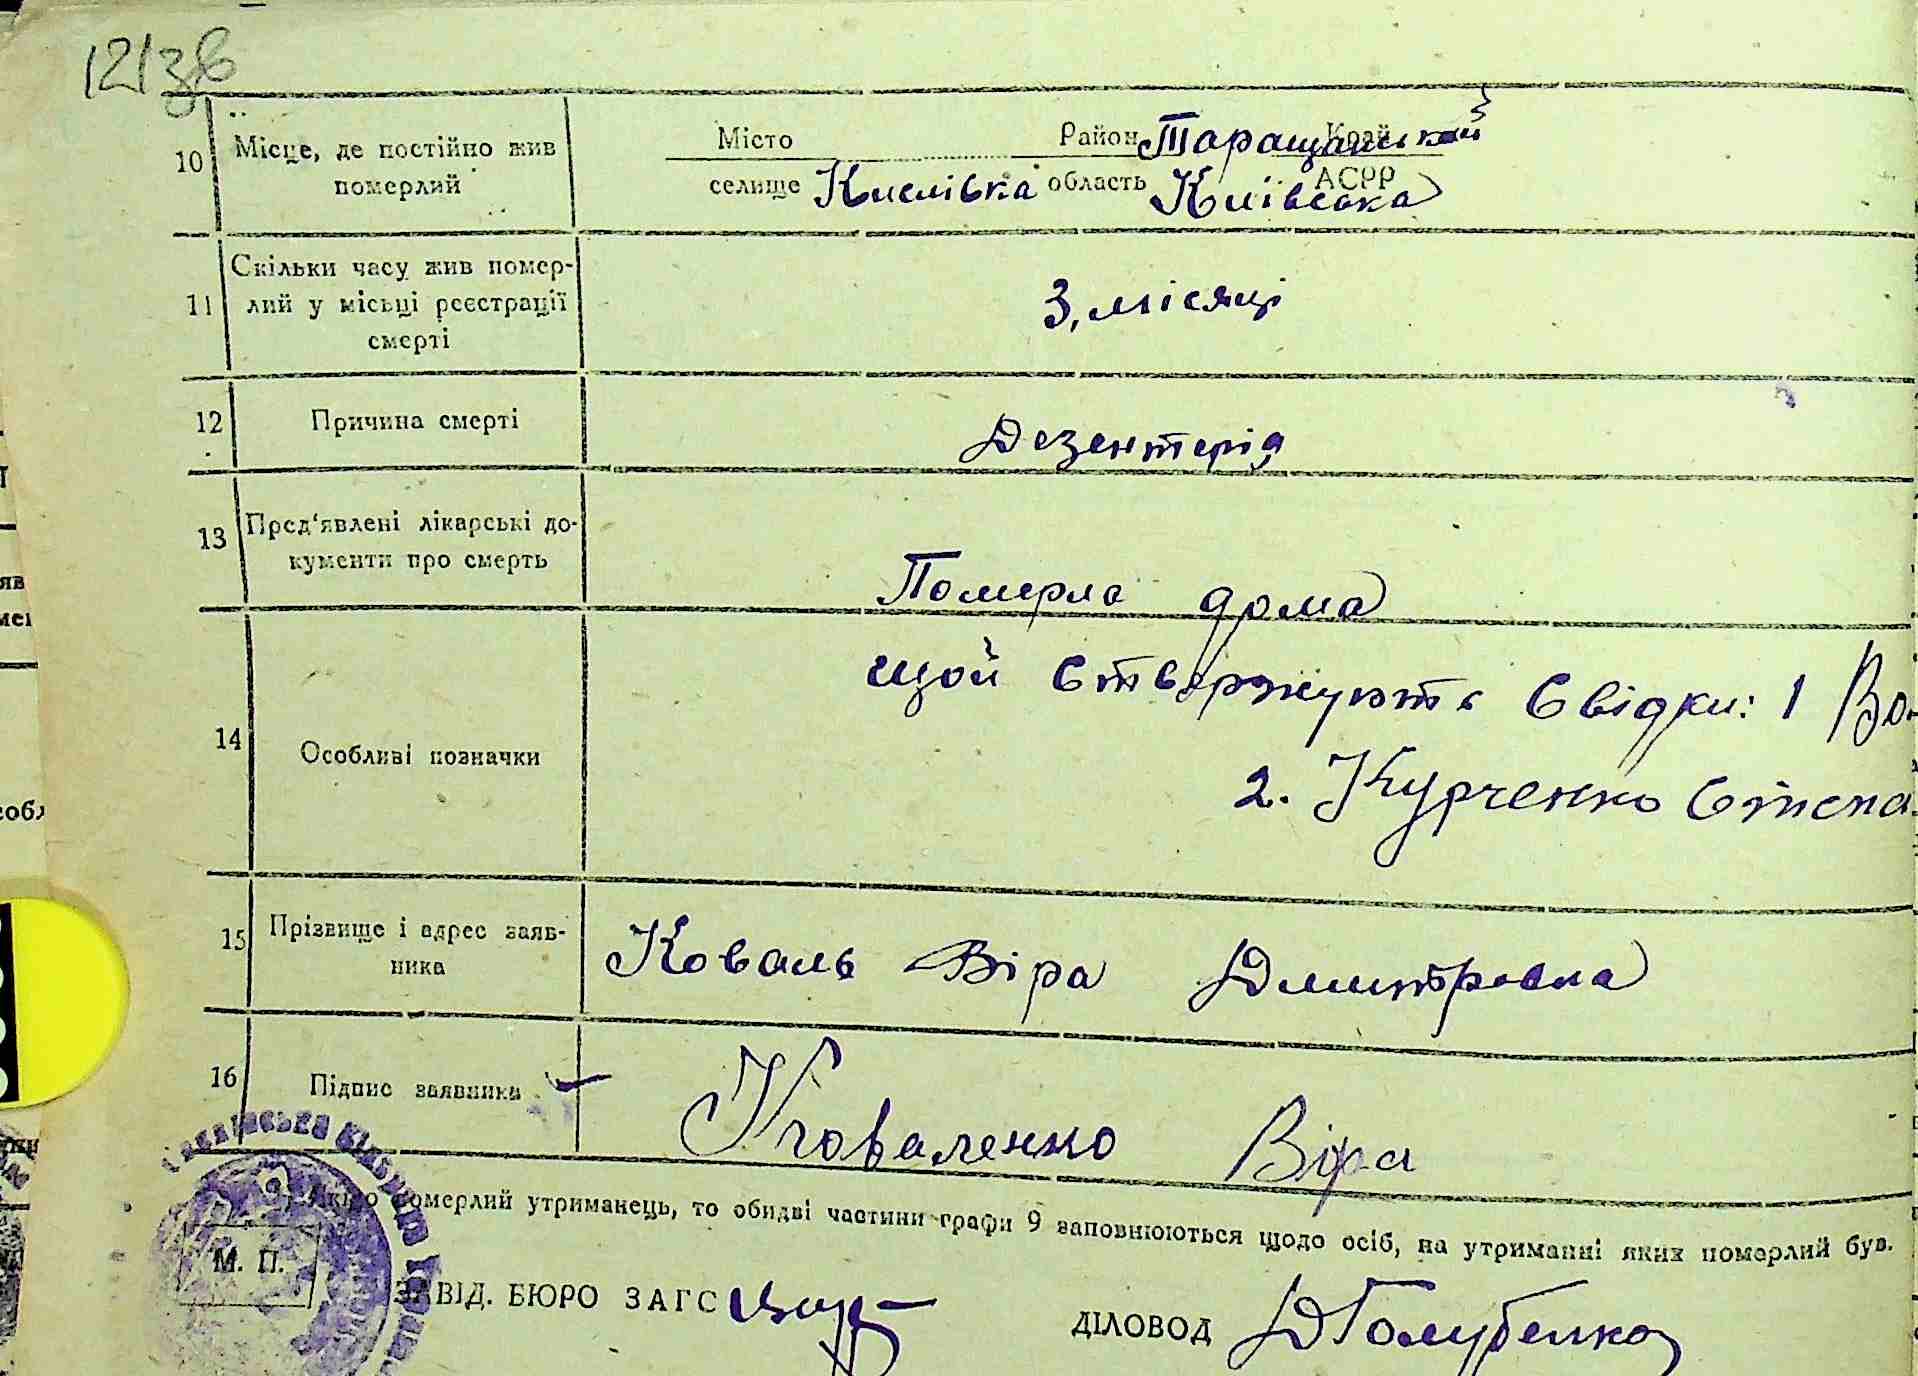 12138
10 Місце, де постійно жив Місто Район Таращанський Край
померлий селище Кислівка область Київська АСРР
Скільки часу жив помер-
11 лий у місьці реєстрації 3, місяці
смерті
12 Причина смерті Дезентерія
13 Пред'явлені лікарські до-
кументи про смерть Померла дома
щой ствержують свідки: 1 Во
14 Особливі позначки
2. Курченко Степа
15 Прізвище і адрес заяв- Коваль Віра Дмитровна
ника
16 Підпис заявника Коваленко Віра
Якщо померлий утриманець, то обидві частини графи 9 заповнюються щодо осіб, на утриманні яких померлий був.
М. П.
ЗАВІД. БЮРО ЗАГС ДІЛОВОД ДГолубенко